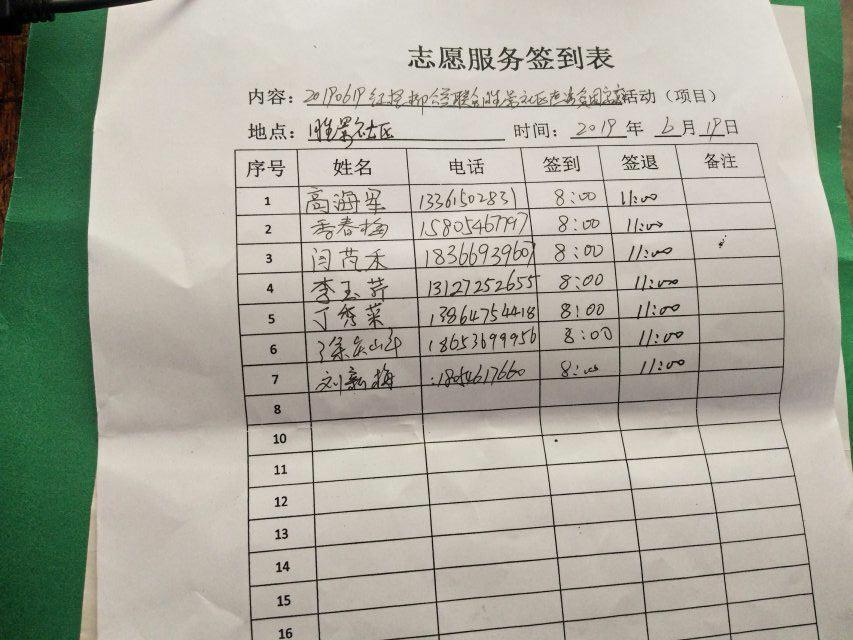 志愿服务签到表
内容：20190619红探柳 联合胜景社区 活动（项目）
地点：胜景社区 时间：2019年6月19日
序号 姓名 电话 签到 签退 备注
1 高海军 13361502831 8:00 11:00
2 香春梅 15805467797 8:00 11:00
3 闫芃禾 18366939607 8:00 11:00
4 李玉萍 13127252655 8:00 11:00
5 丁秀菜 13864754418 8:00 11:00
6 18653699956 8:00 11:00
7 刘新梅 18054617660 8:00 11:00
8
10
11
12
13
14
15
16